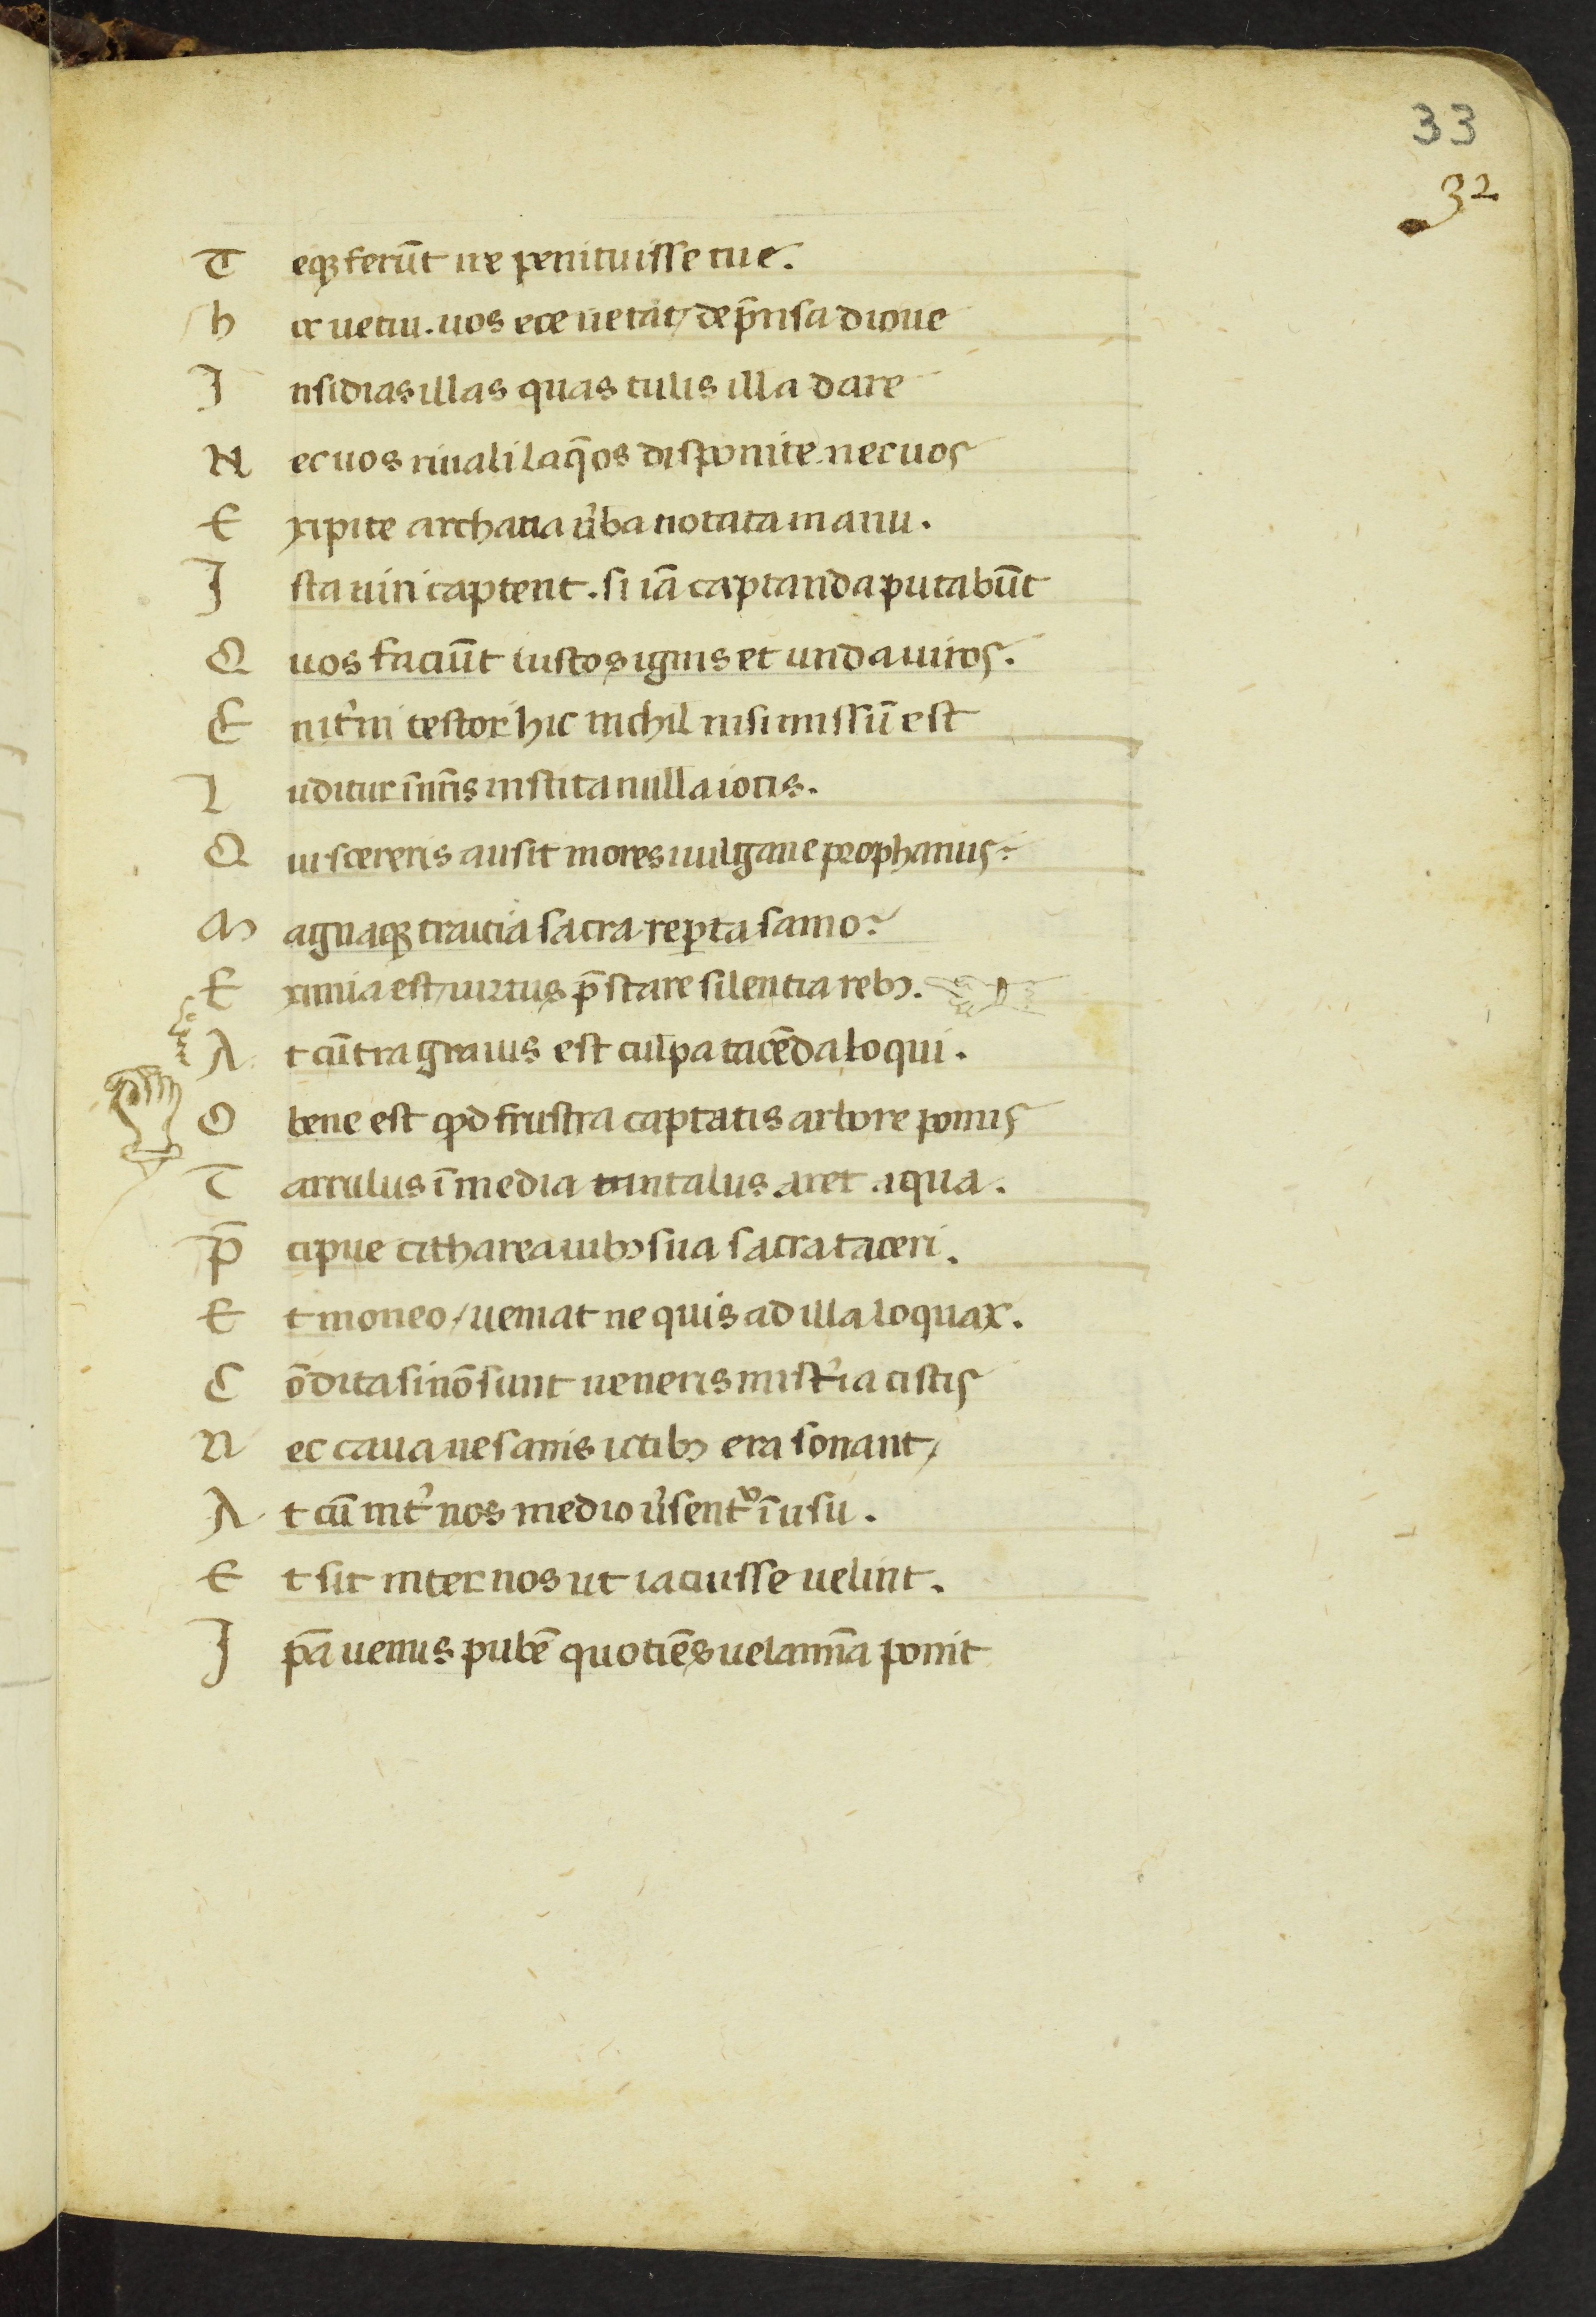 33
32
T eqꝫ ferūt ire penituisse tue.
h ec uetiu. uos ece uetat / dep̄nsa dione
I nsidias illas quas tulit illa dare
N ec uos riuali laq̄os disponite nec uos
E xipite archana ůba notata manu.
I sta uiri captent. si iā captanda putabūt
Q uos faciūt iustos ignis et unda uiros.
E nit̉m testor hic nichil nisi missū est
L uditur ī nr̄is instita nulla iocis.
Q uis cereris ausit mores uulgaue prophanus?
M agnaqꝫ traicia sacra reꝑta samo?
E ximia est / uirtus p̄stare silentia rebꝫ.
A t cūtra grauis est culpa tacēda loqui.
O bene est qd frustra captatis arbore pomis
T arrulus ī media tantalus aret aqua.
P̄ cipue citharea iubꝫ sua sacra taceri.
E t moneo / ueniat ne quis ad illa loquax.
C ōdita si nō sunt ueneris mist̉ia cistis
N ec caua uesanis ictibꝫ era sonant /
A t cū int̉ nos medio ůsent᷑ ī usu.
E t sic inter nos ut iacuisse uelint.
I pā uenus pubē quotiēs uelamīa ponit